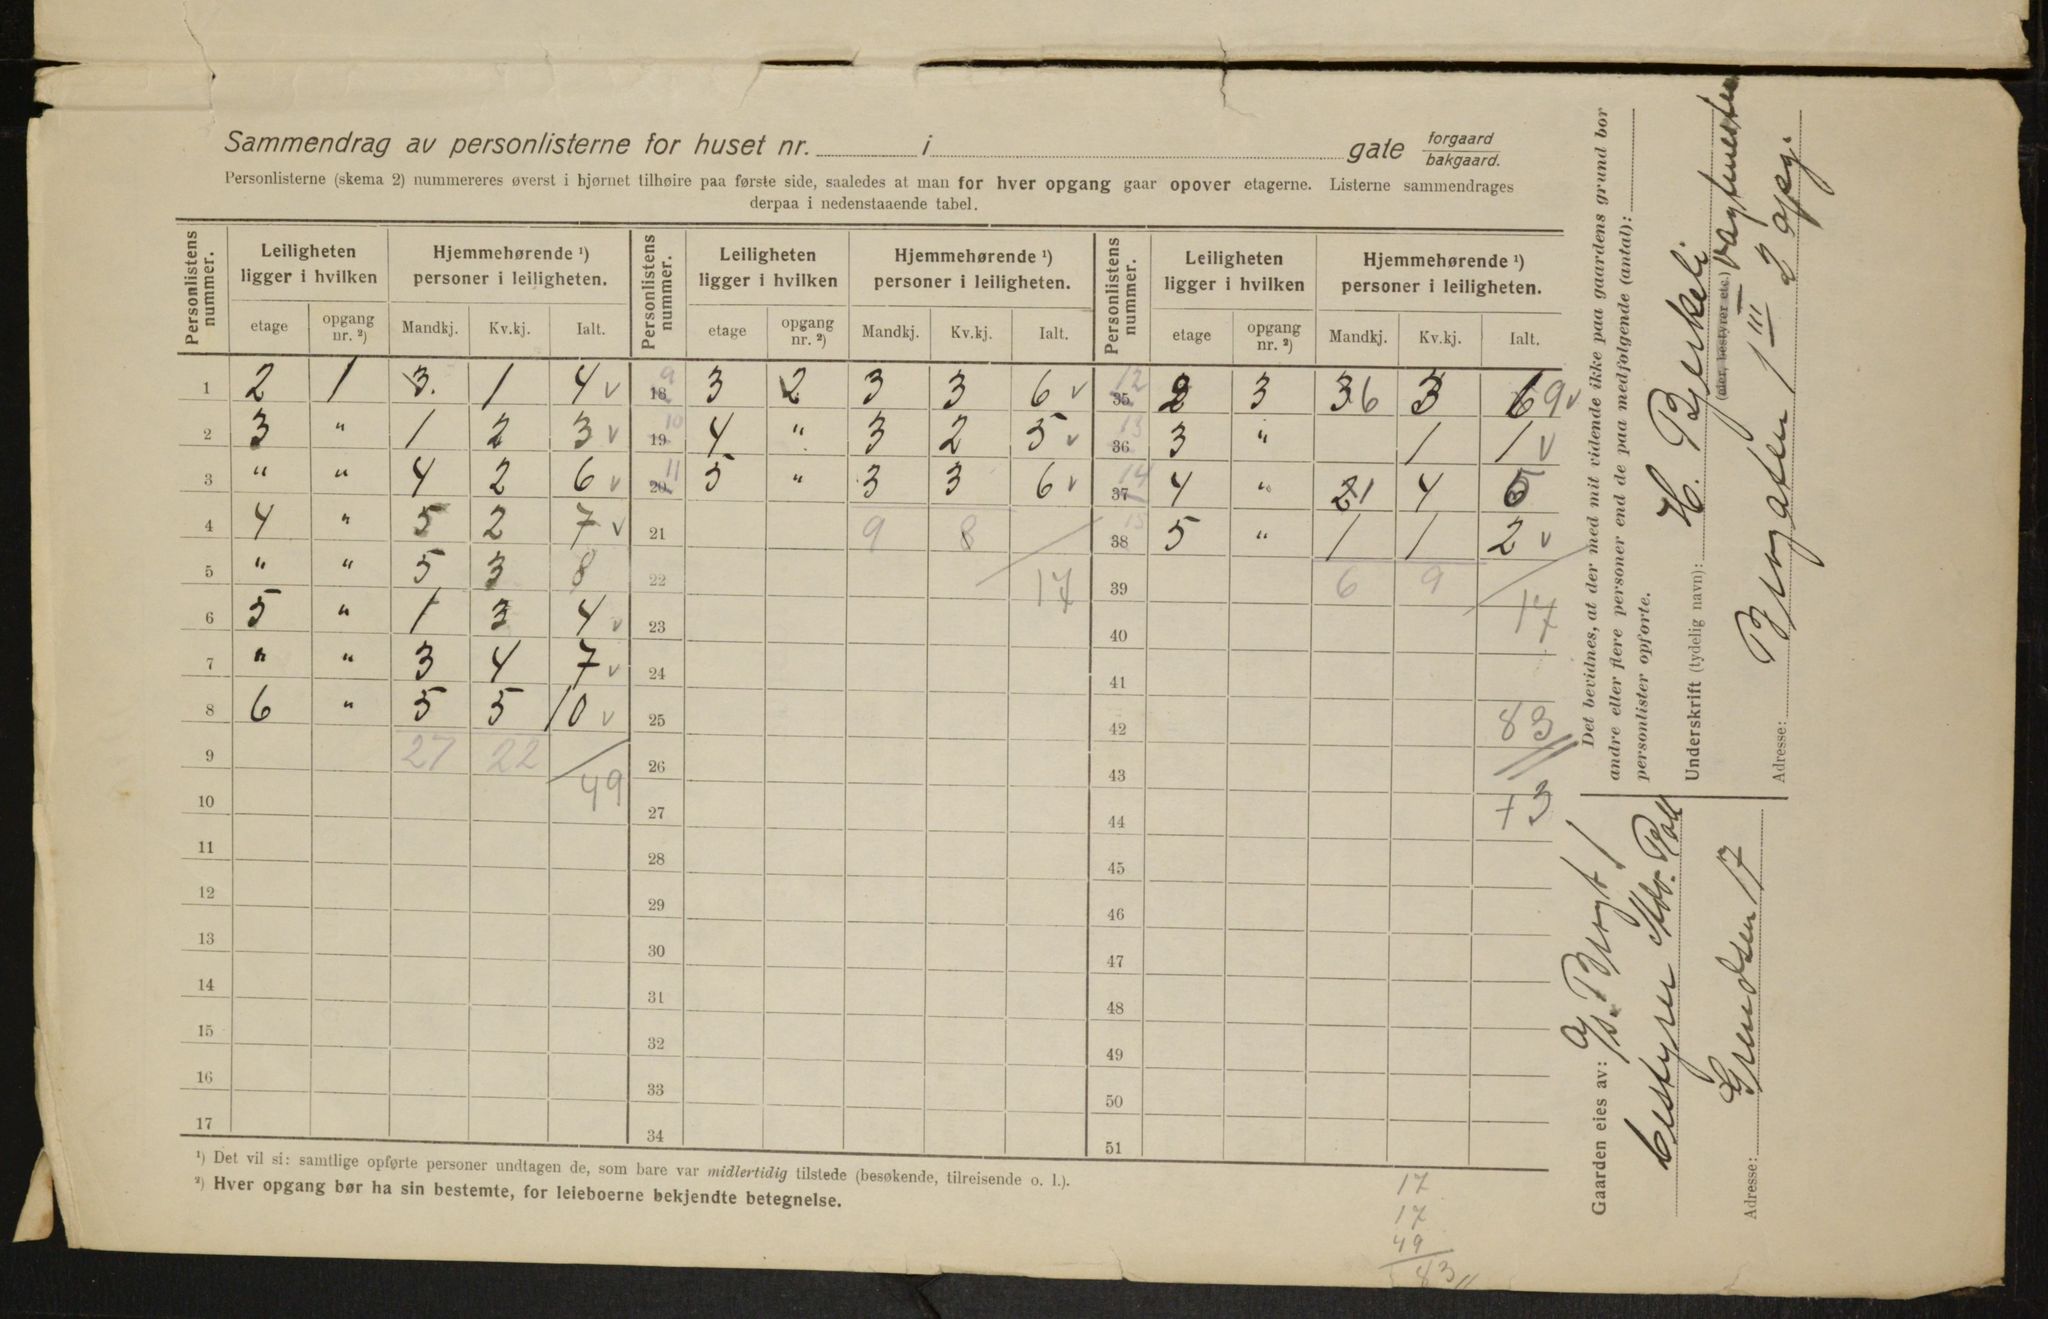 Sammendrag av personlisterne for huset nr. i gate forgaard bakgaard.
Personlisterne (skema 2) nummereres øverst i hjørnet tilhøire paa første side, saaledes at man for hver opgang gaar opover etagerne. Listerne sammendrages
derpaa i nedenstaaende tabel.
Personlistens nummer. Leiligheten ligger i hvilken Hjemmehørende ¹) personer i leiligheten. Personlistens nummer. Leiligheten ligger i hvilken Hjemmehørende ¹) personer i leiligheten. Personlistens nummer. Leiligheten ligger i hvilken Hjemmehørende ¹) personer i leiligheten.
etage opgang nr. ²) Mandkj. Kv.kj. Ialt. etage opgang nr. ²) Mandkj. Kv.kj. Ialt. etage opgang nr. ²) Mandkj. Kv.kj. Ialt.
1 2 1 3 1 4 v 18 9 3 2 3 3 6 v 35 12 2 3 3 6 3 6 9 v
2 3 " 1 2 3 v 19 10 4 " 3 2 5 v 36 13 3 " 1 1 v
3 " " 4 2 6 v 20 11 5 " 3 3 6 v 37 14 4 " 2 1 4 5
4 4 " 5 2 7 v 21 9 8 38 15 5 " 1 1 2 v
5 " " 5 3 8 22 17 39 6 9
6 5 " 1 3 4 v 23 40 17
7 " " 3 4 7 v 24 41
8 6 " 5 5 10 v 25 42 83
9 27 22 26 43
10 49 27 44 + 3
11 28 45
12 29 46
13 30 47
14 31 48
15 32 49
16 33 50
17 34 51
¹) Det vil si: samtlige opførte personer undtagen de, som bare var midlertidig tilstede (besøkende, tilreisende o. l.).
²) Hver opgang bør ha sin bestemte, for leieboerne bekjendte betegnelse.
17
17
49
83
Det bevidnes, at der med mit vidende ikke paa gaardens grund bor
andre eller flere personer end de paa medfølgende (antal):
personlister opførte.
Underskrift (tydelig navn): H. Bjerkeli
(eier, bestyrer etc.) vagtmester
Adresse: Brugaten 1 III 2 opg.
Gaarden eies av: A/S. Brugt 1
bestyrer
Adresse: Grændsen 17